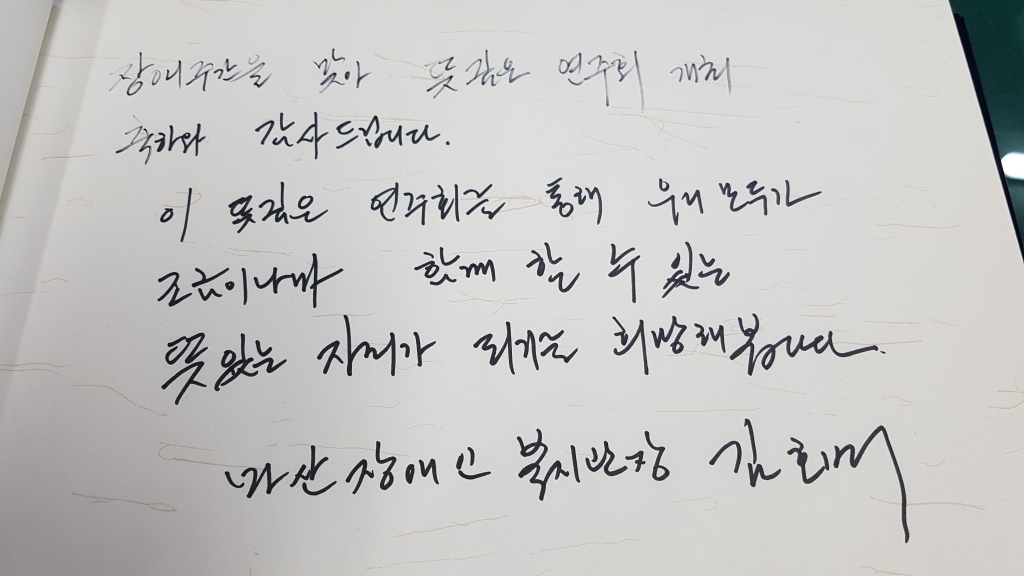 장애주간을 맞아 뜻깊은 연주회 개최
축하와 감사드립니다.
이 뜻깊은 연주회를 통해 우리 모두가
조금이나마 함께 할 수 있는
뜻있는 자리가 되기를 희망해봅니다.
마산장애인복지관장 김